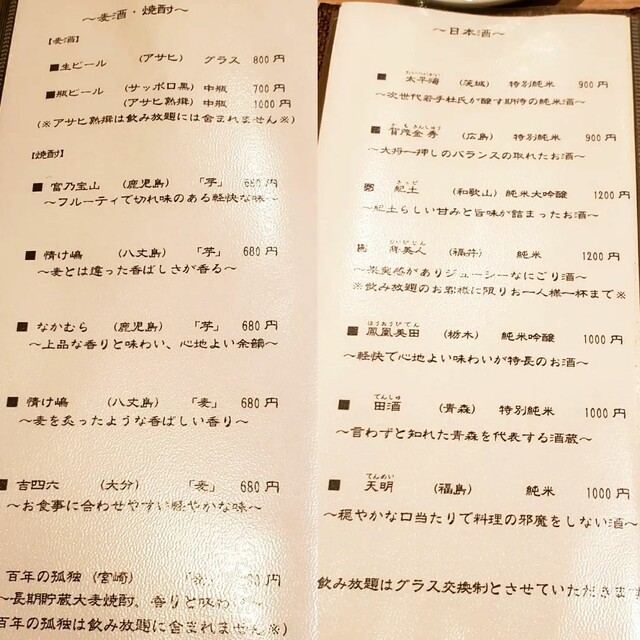 ～麦酒・焼酎～
【麦酒】
■生ビール (アサヒ) グラス 800円
■瓶ビール (サッポロ黒) 中瓶 700円
(アサヒ熟撰) 中瓶 1000円
(※アサヒ熟撰は飲み放題には含まれません※)
【焼酎】
■ 宮乃宝山 (鹿児島) 「芋」 680円
～フルーティで切れ味のある軽快な味～
■ 情け嶋 (八丈島) 「芋」 680円
～麦とは違った香ばしさが香る～
■ なかむら (鹿児島) 「芋」 680円
～上品な香りと味わい、心地よい余韻～
■ 情け嶋 (八丈島) 「麦」 680円
～麦を炙ったような香ばしい香り～
■ 吉四六 (大分) 「麦」 680円
～お食事に合わせやすい軽やかな味～
百年の孤独 (宮崎) 円
～長期貯蔵大麦焼酎、香りと味わい～
百年の孤独は飲み放題に含まれません※)
～日本酒～
■ 太平海 (茨城) 特別純米 900円
～次世代若手杜氏が醸す期待の純米酒～
かもきんしゅう
■ 賀茂金秀 (広島) 特別純米 900円
～大将一押しのバランスの取れたお酒～
きっど
紀土 (和歌山) 純米大吟醸 1200円
～紀土らしい甘みと旨味が詰まったお酒～
美人 (福井) 純米 1200円
～果実感がありジューシーなにごり酒～
※飲み放題のお客様に限りお一人様一杯まで※
ほうおうびでん
■ 鳳凰美田 (栃木) 純米吟醸 1000円
～軽快で心地よい味わいが特長のお酒～
でんしゅ
■ 田酒 (青森) 特別純米 1000円
～言わずと知れた青森を代表する酒蔵～
てんめい
■ 天明 (福島) 純米 1000円
～穏やかな口当たりで料理の邪魔をしない酒～
飲み放題はグラス交換制とさせていただきます